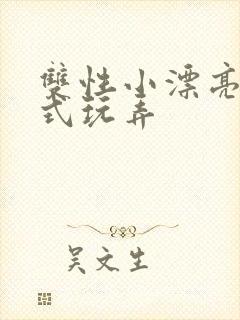 雙性小漂亮
式玩弄
吴文生